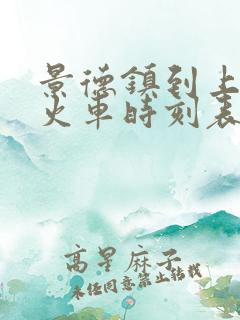 景德鎮到上
火車時刻表
高星麻子
未经同意禁止转载